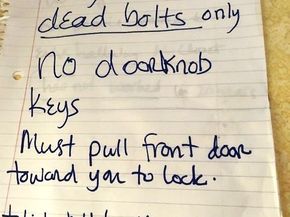 dead bolts only
No doorknob
keys
Must pull front door
toward you to lock.